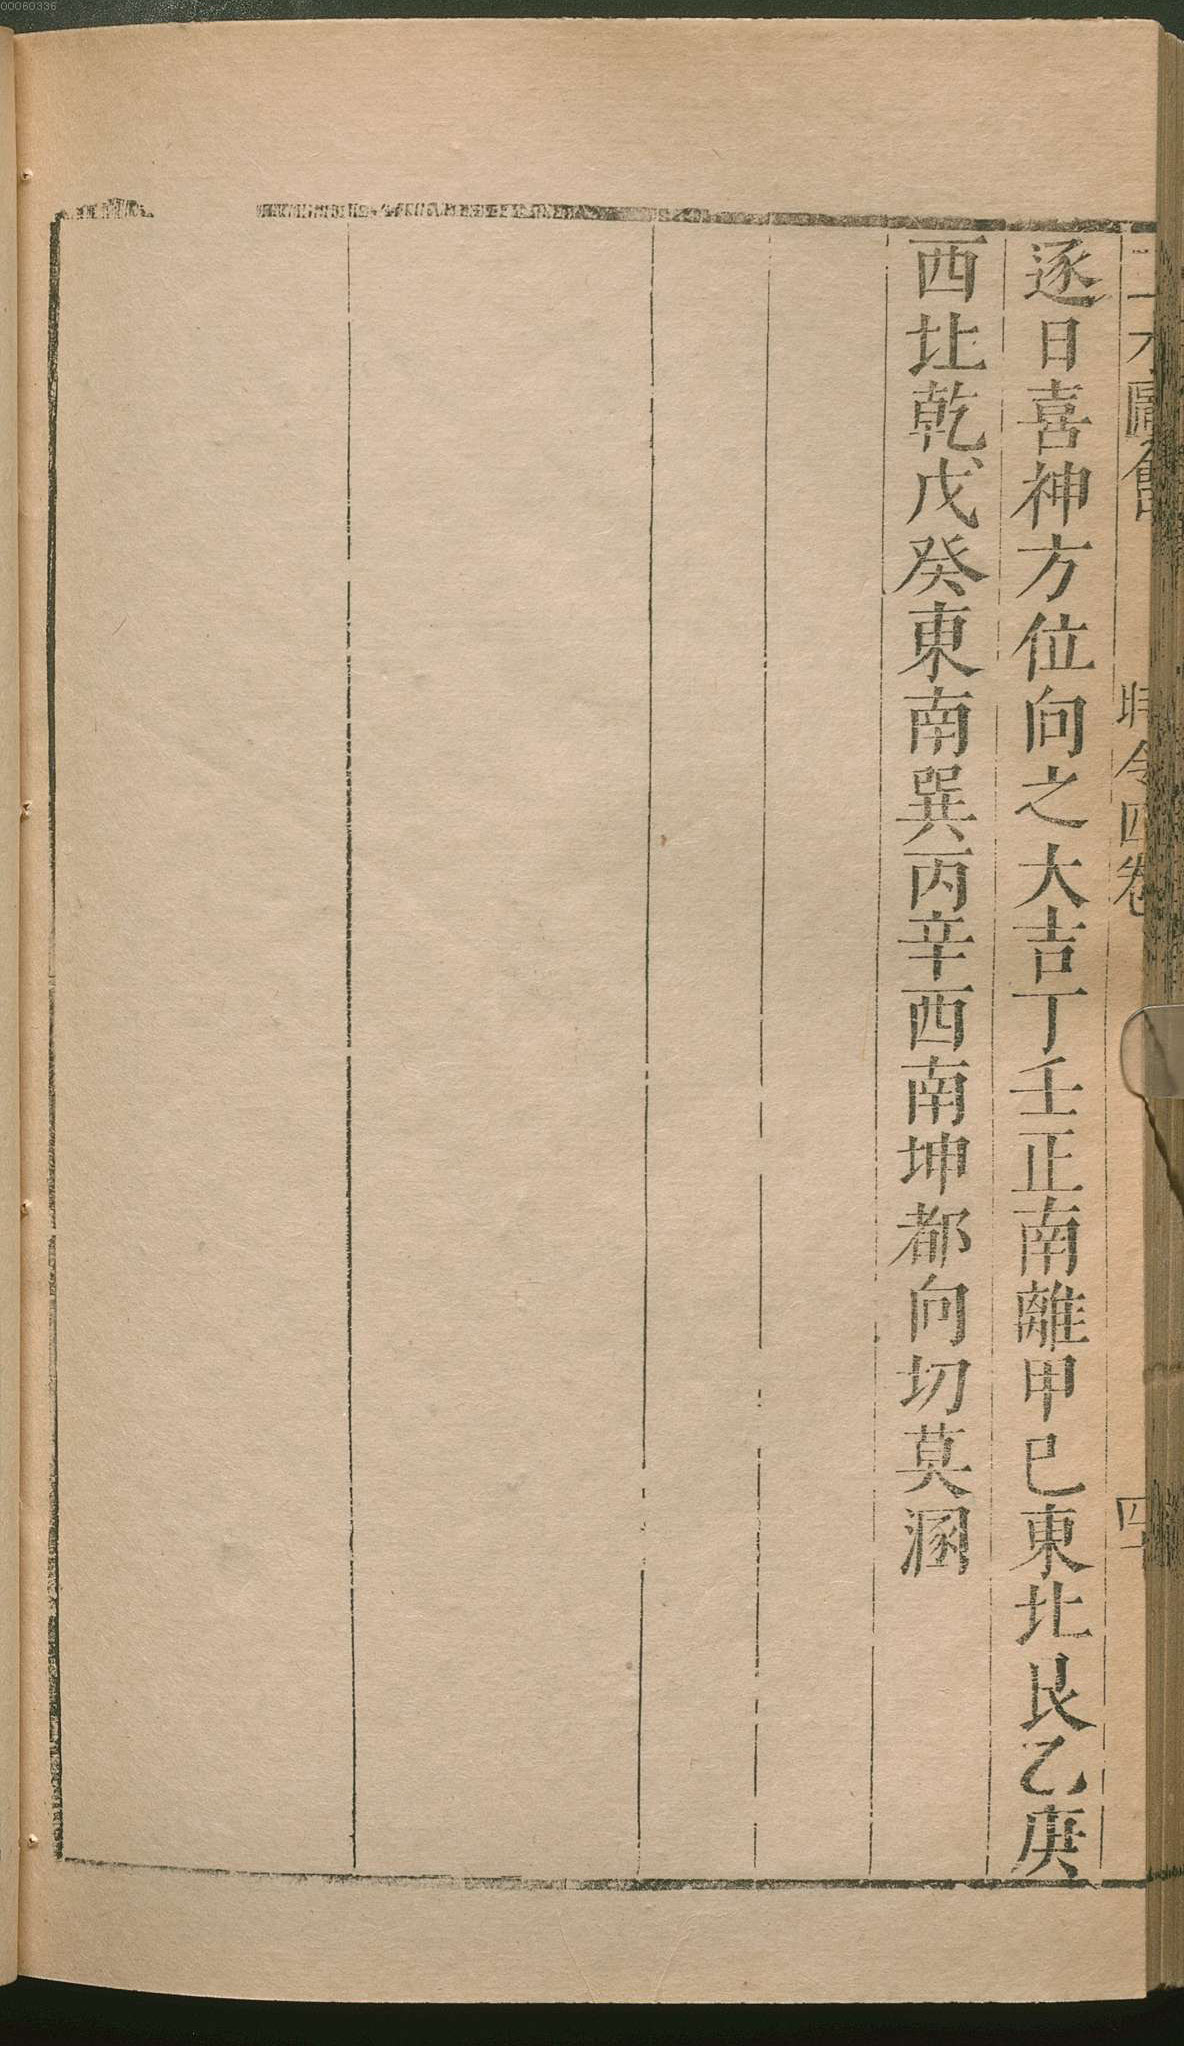 三才圖會 時令四卷 四
逐日喜神方位向之大吉丁壬正南離甲巳東北艮乙庚
西北乾戊癸東南巽丙辛西南坤都向切莫溷
00060336